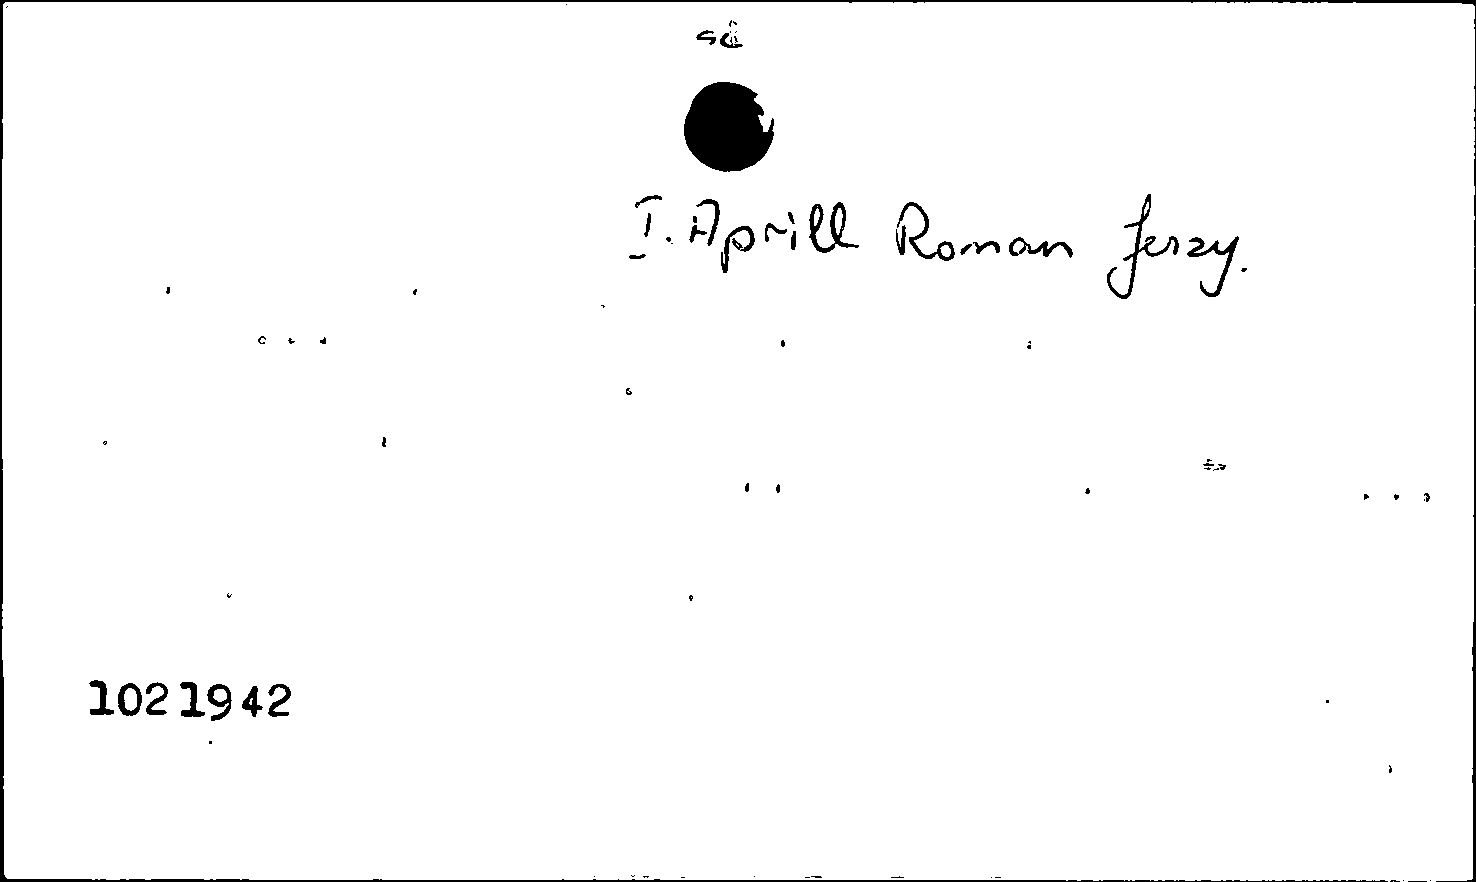 I. Aprill Roman Jerzy.
1021942